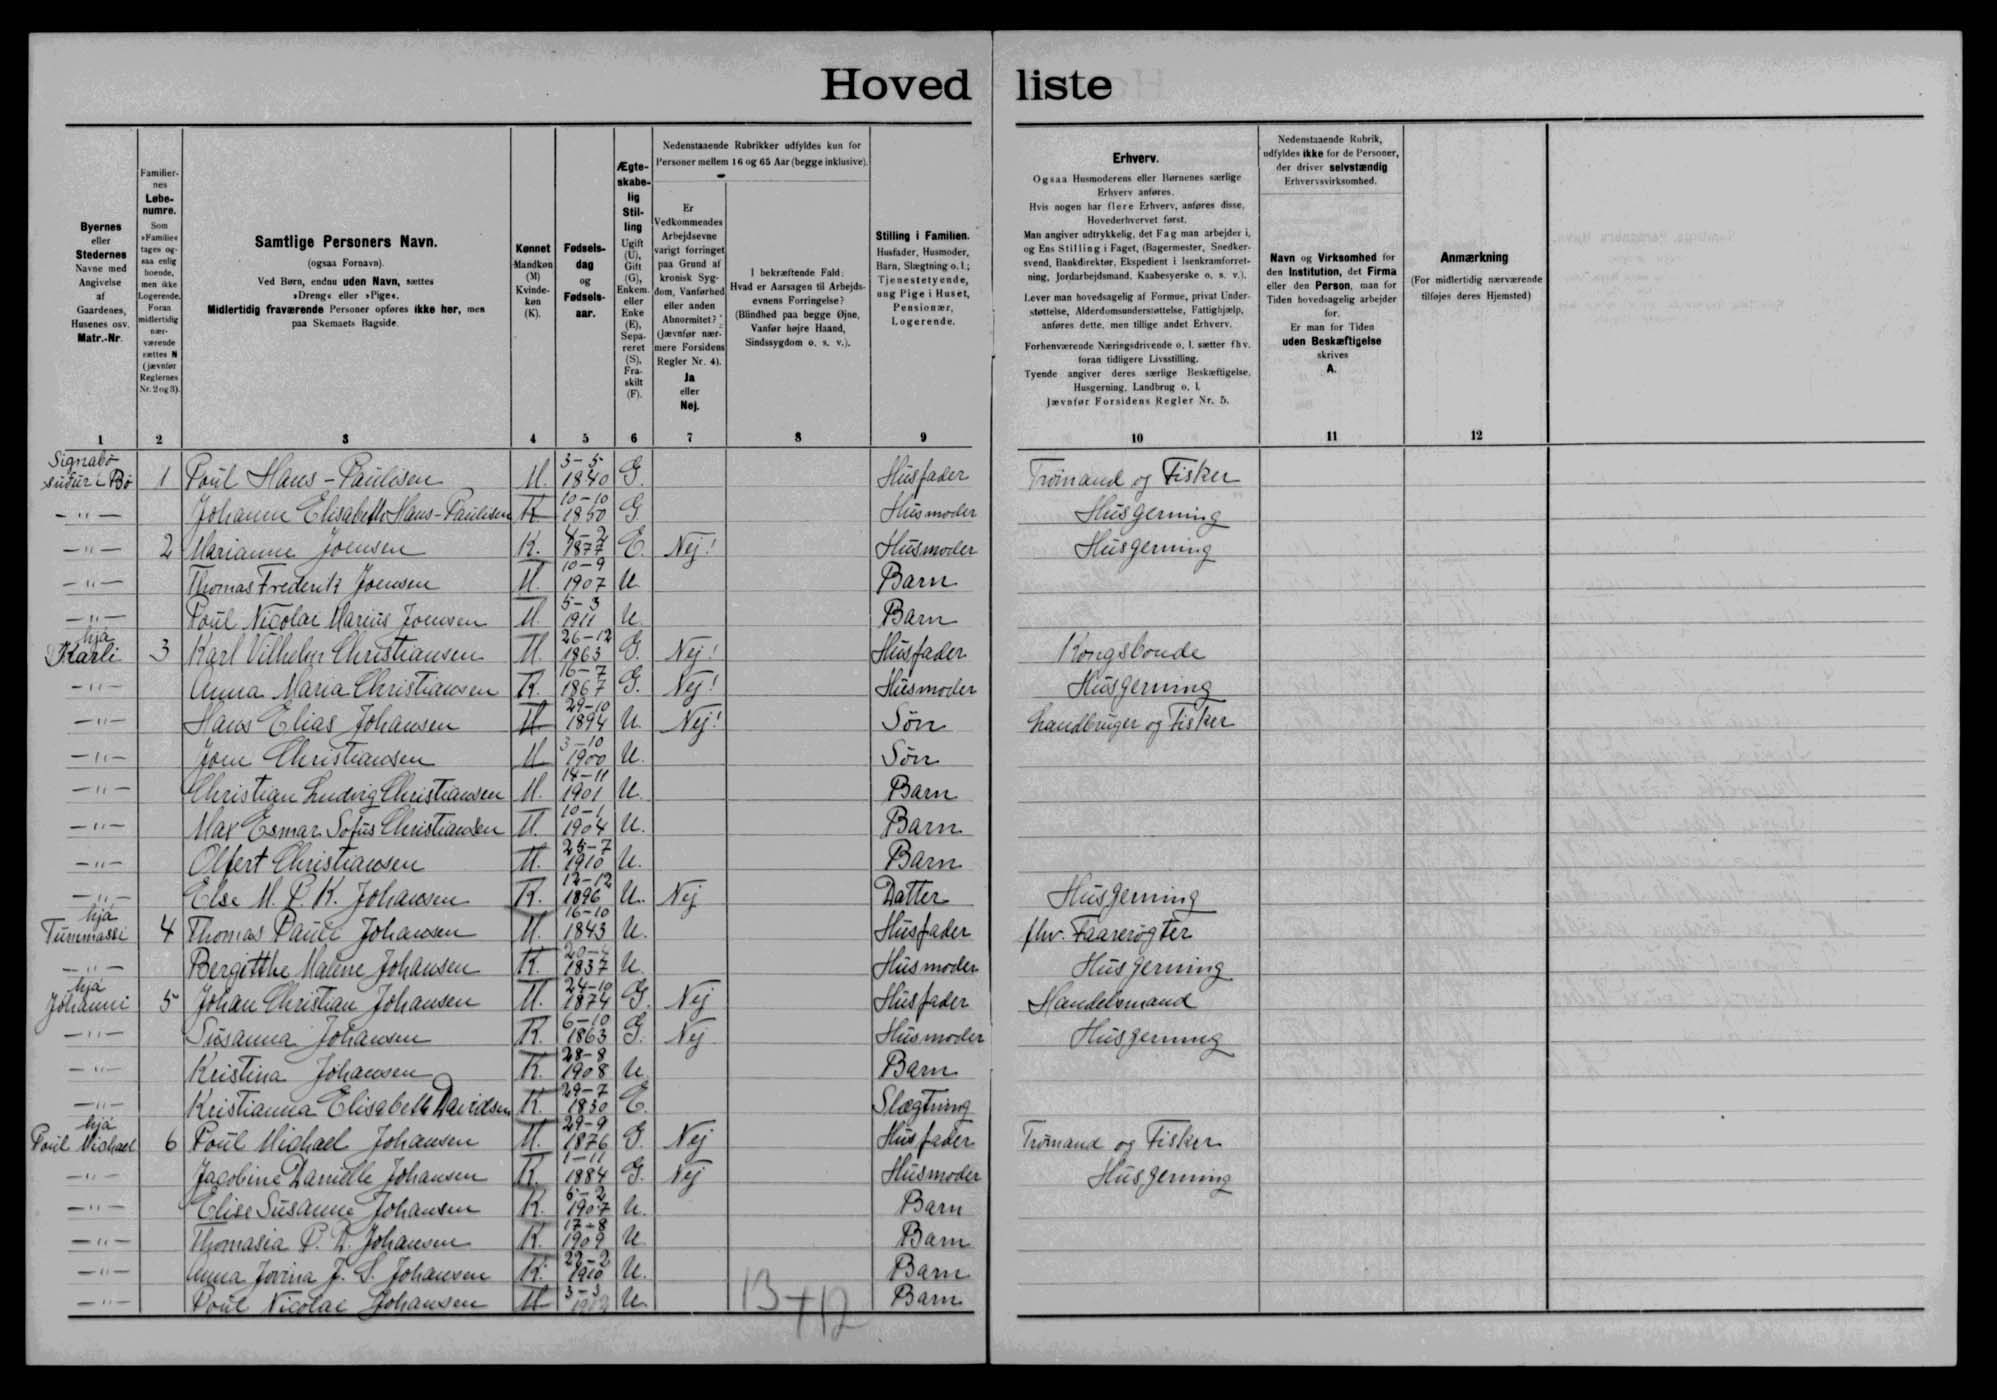 Hoved liste
Byernes
eller
Stedernes
Navne med
Angivelse
af
Gaardenes,
Husenes osv.
Matr.-Nr.
Familier-
nes
Løbe-
numre.
Som
»Familie«
tages og-
saa enlig
boende,
men ikke
Logerende.
Foran
midlertidig
nær-
værende
sættes N
(jævnfør
Reglernes
Nr. 2 og 3).
Samtlige Personers Navn.
(ogsaa Fornavn).
Ved Børn, endnu uden Navn, sættes
»Dreng« eller »Pige«.
Midlertidig fraværende Personer opføres ikke her, men
paa Skemaets Bagside.
Kønnet
Mandkøn
(M)
Kvinde-
køn
(K).
Fødsels-
dag
og
Fødsels-
aar.
Ægte-
skabe-
lig
Stil-
ling
Ugift
(U),
Gift
(G),
Enkem.
eller
Enke
(E),
Sepa-
reret
(S),
Fra-
skilt
(F).
Nedenstaaende Rubrikker udfyldes kun for
Personer mellem 16 og 65 Aar (begge inklusive).
Er
Vedkommendes
Arbejdsevne
varigt forringet
paa Grund af
kronisk Syg-
dom, Vanførhed
eller anden
Abnormitet?
(Jævnfør nær-
mere Forsidens
Regler Nr. 4).
Ja
eller
Nej.
I bekræftende Fald:
Hvad er Aarsagen til Arbejds-
evnens Forringelse?
(Blindhed paa begge Øjne,
Vanfør højre Haand,
Sindssygdom o. s. v.).
Stilling i Familien.
Husfader, Husmoder,
Barn, Slægtning o. l.;
Tjenestetyende,
ung Pige i Huset,
Pensionær,
Logerende.
Erhverv.
Ogsaa Husmoderens eller Børnenes særlige
Erhverv anføres.
Hvis nogen har flere Erhverv, anføres disse,
Hovederhvervet først.
Man angiver udtrykkelig, det Fag man arbejder i,
og Ens Stilling i Faget, (Bagermester, Snedker-
svend, Bankdirektør, Ekspedient i Isenkramforret-
ning, Jordarbejdsmand, Kaabesyerske o. s. v.).
Lever man hovedsagelig af Formue, privat Under-
støttelse, Alderdomsunderstøttelse, Fattighjælp,
anføres dette, men tillige andet Erhverv.
Forhenværende Næringsdrivende o. l. sætter fhv.
foran tidligere Livsstilling.
Tyende angiver deres særlige Beskæftigelse,
Husgerning, Landbrug o. l.
Jævnfør Forsidens Regler Nr. 5.
Nedenstaaende Rubrik,
udfyldes ikke for de Personer,
der driver selvstændig
Erhvervsvirksomhed.
Navn og Virksomhed for
den Institution, det Firma
eller den Person, man for
Tiden hovedsagelig arbejder
for.
Er man for Tiden
uden Beskæftigelse
skrives
A.
Anmærkning
(For midlertidig nærværende
tilføjes deres Hjemsted)
1 2 3 4 5 6 7 8 9 10 11 12
Signabø
suður í Bø 1 Poul Hans-Paulisen M. 3-5 1840 G. Husfader Trømand og Fisker
-"- Johanne Elisabeth Hans-Paulisen K. 10-10 1850 G. Husmoder Husgerning
-"- 2 Marianne Joensen K. 1877 E. Nej! Husmoder Husgerning
-"- Thomas Frederik Joensen M. 10-9 1907 U. Barn
-"- Poul Nicolai Marius Joensen M. 5-3 1911 U. Barn
hjá
Karli 3 Karl Vilhelm Christiansen M. 26-12 1863 G. Nej! Husfader Kongsbonde
-"- Anna Maria Christiansen K. 16-7 1867 G. Nej! Husmoder Husgerning
-"- Hans Elias Johansen M 29-10 1894 U. Nej! Søn Landbruger og Fisker
-"- Joen Christiansen M 3-10 1900 U. Søn
-"- Christian Ludvig Christiansen M. 14-11 1901 U. Barn
-"- Max Esmar Sofus Christiansen M. 10-1 1904 U. Barn
-"- Olfert Christiansen M. 25-7 1910 U. Barn
-"- Else M. P. K. Johansen K. 12-12 1896 U. Nej Datter Husgerning
hjá
Tummassi 4 Thomas Pauli Johansen M. 16-10 1843 U. Husfader fhv. Faarerøgter
-"- Bergitthe Malene Johansen K. 1837 U. Husmoder Husgerning
hjá
Jóhanni 5 Johan Christian Johansen M. 24-10 1874 G. Nej Husfader Handelsmand
-"- Susanna Johansen K. 6-10 1863 G. Nej Husmoder Husgerning
-"- Kristina Johansen K. 28-8 1908 U. Barn
-"- Kristianna Elisabeth Davidsen K. 29-7 1830 E. Slægtning
hjá
Poul Michael 6 Poul Michael Johansen M. 29-9 1876 G. Nej Husfader Trømand og Fisker
-"- Jacobine Danielle Johansen K. 1-11 1884 G. Nej Husmoder Husgerning
-"- Elise Susanne Johansen K. 5-2 1907 U. Barn
-"- Thomasia P. D. Johansen K. 17-8 1909 U. Barn
-"- Anna Jovina J. S. Johansen K. 22-2 1910 U. Barn
-"- Poul Nicolai Johansen M 3-3 U. Barn
13+12